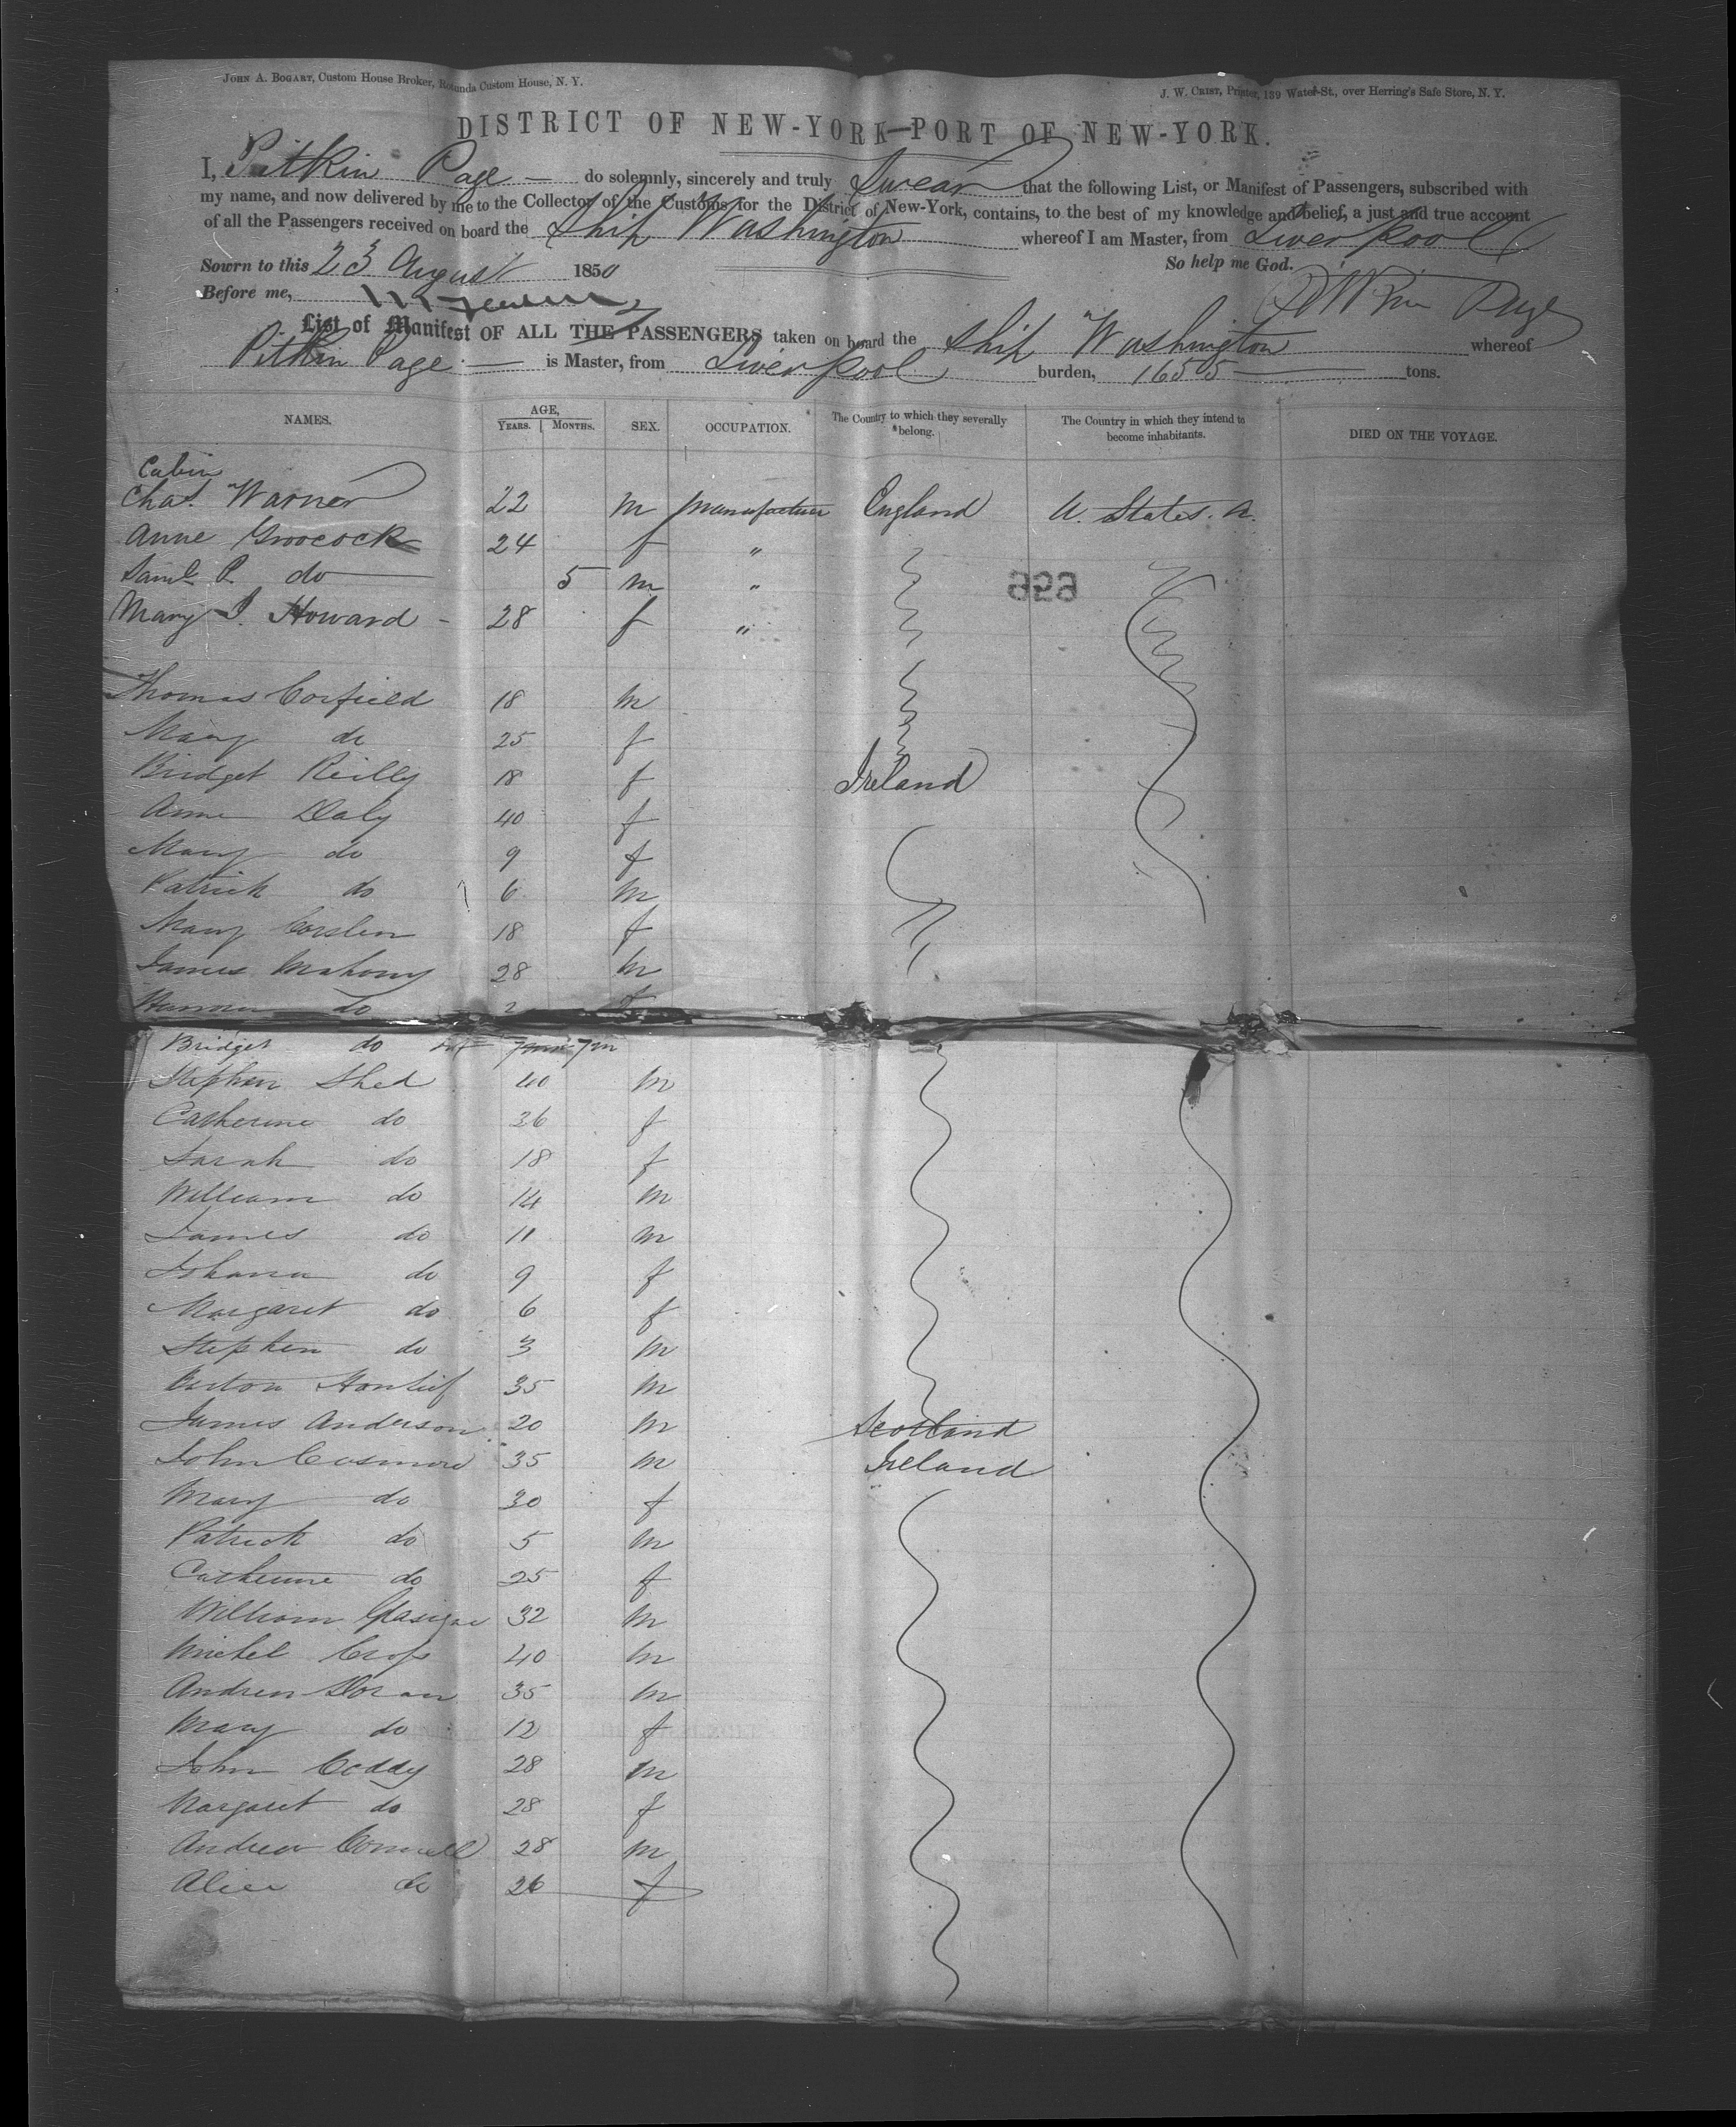 JOHN A. BOGART, Custom House Broker, Rotunda Custom House, N. Y.
J. W. CRIST, Printer, 139 Water-St., over Herring's Safe Store, N. Y.
DISTRICT OF NEW-YORK—PORT OF NEW-YORK.
I, Pitkin Page do solemnly, sincerely and truly Swear that the following List, or Manifest of Passengers, subscribed with
my name, and now delivered by me to the Collector of the Customs for the District of New-York, contains, to the best of my knowledge and belief, a just and true account
of all the Passengers received on board the Ship Washington whereof I am Master, from Liverpool
Sowrn to this 23 August 1850 So help me God.
Before me, Pitkin Page
List of Manifest OF ALL THE PASSENGERS taken on board the Ship Washington whereof
Pitkin Page is Master, from Liverpool burden, 1655 tons.
NAMES. AGE, YEARS. MONTHS. SEX. OCCUPATION. The Country to which they severally belong. The Country in which they intend to become inhabitants. DIED ON THE VOYAGE.
Cabin
Chas. Warner 22 m Manufacturer England U. States. A.
Anne Groocock 24 f "
Saml P. do 5 m "
659
Mary I. Howard - 28 f "
Thomas Corfield 18 m
Mary do 25 f
Bridget Reilly 18 f Ireland
Anne Daly 40 f
Mary do 9 f
Patrick do 6 m
Mary 18 f
James Mahony 28 m
do 2 f
Bridget do inf 7m
Stephen Shed 40 m
Catherine do 36 f
Sarah do 18 f
William do 14 m
James do 11 m
Johana do 9 f
Margaret do 6 f
Stephen do 3 m
35 m
James Anderson 20 m Scotland
John 35 m Ireland
Mary do 30 f
Patrick do 5 m
Catherine do 25 f
William 32 m
Michel Cross 40 m
Andrew Doran 35 m
Mary do 12 f
John Coddy 28 m
Margaret do 28 f
Andrew Connell 28 m
Alice do 26 f